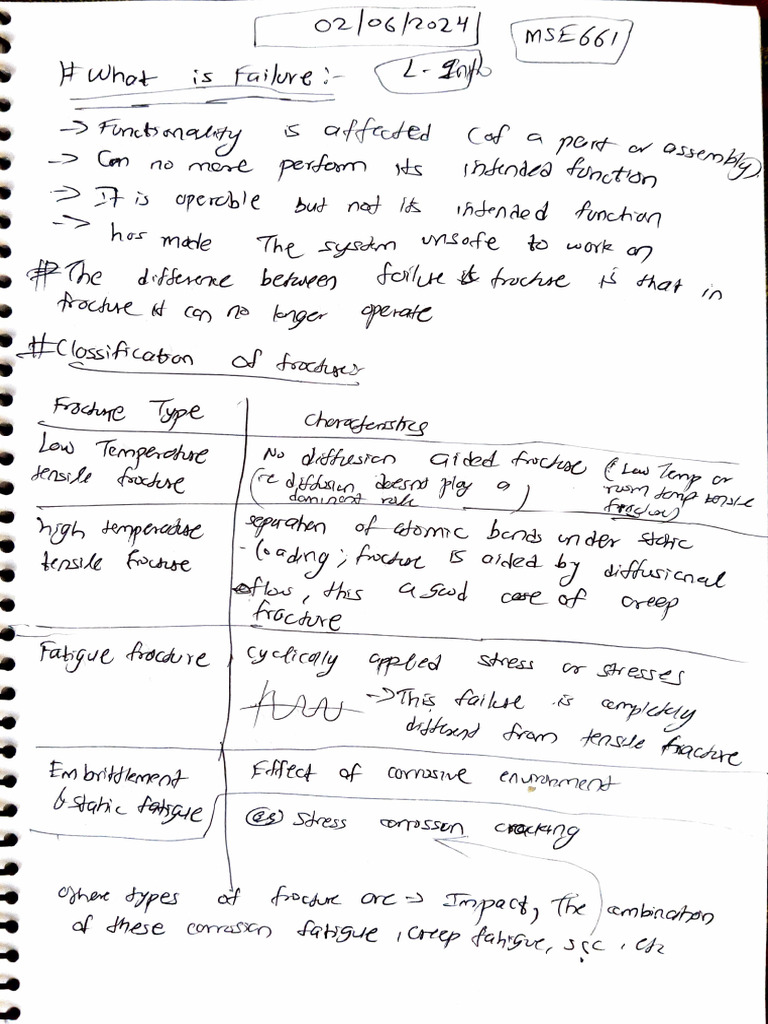 02/06/2024
MSE661
# What is Failure:-
L-
-> Functionality is affected (of a part or assembly).
-> Can no more perform its intended function
-> It is operable but not its intended function
-> has made The system unsafe to work on
# The difference between failure & fracture is that in
fracture it can no longer operate
# Classification of fracture:
Fracture Type
Characteristics
Low Temperature
tensile fracture
No diffusion aided fracture (Low Temp or
room temp tensile
fracture)
(ie diffusion doesnot play a
dominant role)
high temperature
tensile fracture
separation of atomic bonds under static
loading; fracture is aided by diffusional
flow, this a good case of creep
fracture
Fatigue fracture
cyclically applied stress or stresses
-> This failure is completely
different from tensile fracture
Embrittlement
& static fatigue
Effect of corrosive environment
(eg) stress corrosson cracking
types of fracture are -> Impact, The combination
of these corrosion fatigue, creep fatigue, scc, etc